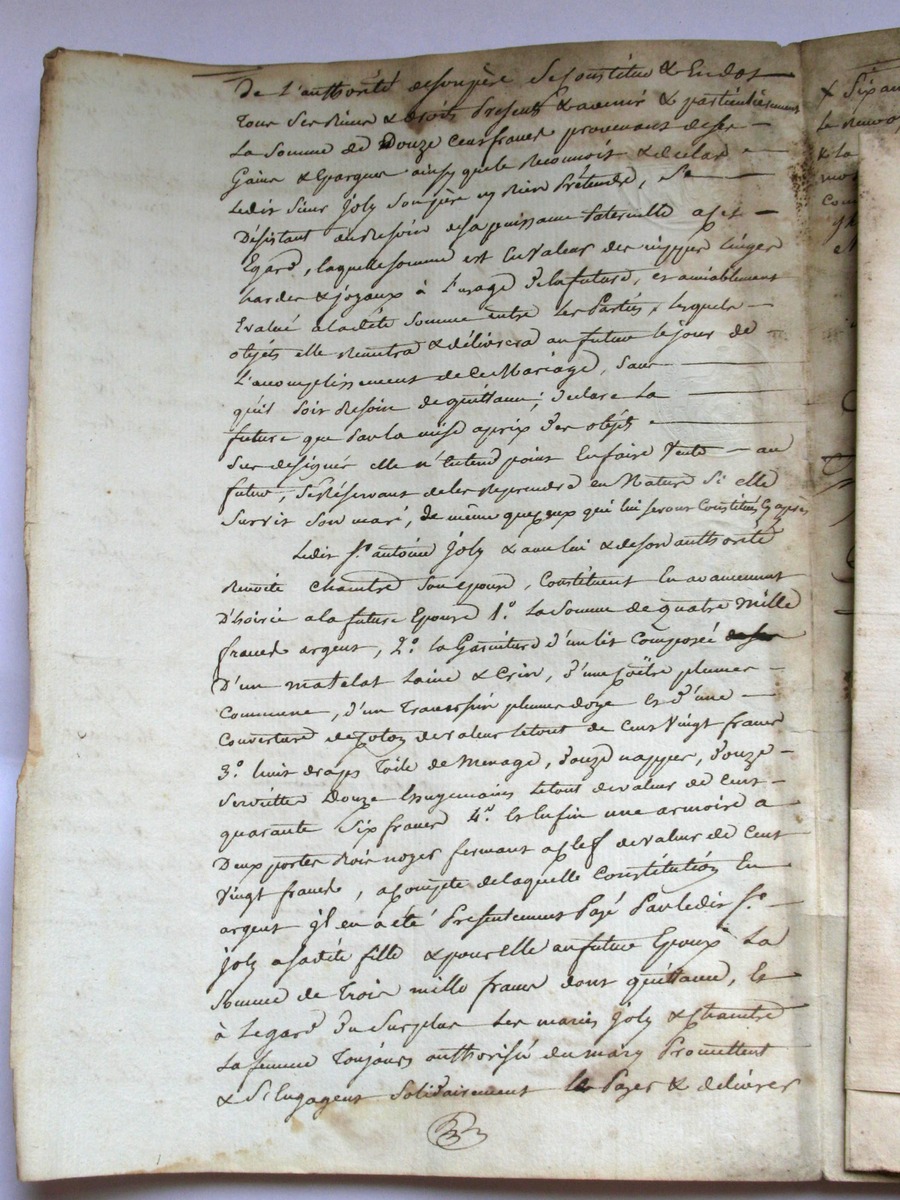 de l'authorité desonpère Seconstitue & En dot
tous Ses biens & droits Presents & avenir & particulièrement
la Somme de Douze Cens francs provenant deses
Gains & Epargnes ainsy quele Reconnoit & declare
Ledit Sieur Joly Son père ny Rien Prétendre, Se
Désistant aubesoin desa puissance Paternelle acet
Egard, laquelle somme est En valeur des nippes linges
hardes & joyaux à L'usage de la future, et amiablement
Evalué aladite Somme entre les Parties, lesquels
objets elle Remettra & délivrera au futur le jour de
L'accomplissement de Ce Mariage, Sans
qu'il soit Besoin de quittance; declare La
future que Par la mise aprix des objets
Sus designés elle n'Entend point En faire Vente au
futur, se Réservant deles Reprendre en Nature Si elle
Survit Son mari, de même que Ceux qui lui seront Constitués Cy après
Ledit Sr. antoine Joly & avec lui & deson authorité
Benoite chambre Son epouse, Constituent En avancement
D'hoirie a la future Epouse 1º. La Somme de quatre Mille
francs argent, 2º. la Garniture d'un lit Composée
D'un matelat Laine & Crin, d'une Coëtre plumes
Commune, d'un Traversin plumes doye Et d'une
Couverture de Coton de valeur letout de Cent Vingt francs
3º. huit draps Toile de Menage, douze nappes, douze
Serviettes Douze Essuyemains letout devaleur de Cent
quarante Six francs 4º. Et Enfin une armoire a
Deux portes Bois noyer fermant a Clef de valeur de Cent
Vingt francs, acompte delaquelle Constitution En
argent il en a été Presentement Payé Par ledit Sr.
Joly asadite fille & pour elle au futur Epoux La
Somme de Trois mille francs dont quittance, Et
à Legard du Surplus Les maries Joly & Chambre
La femme Toujours authorisée du mary Promettent
& S'Engagent Solidairement le Payer & delivrer